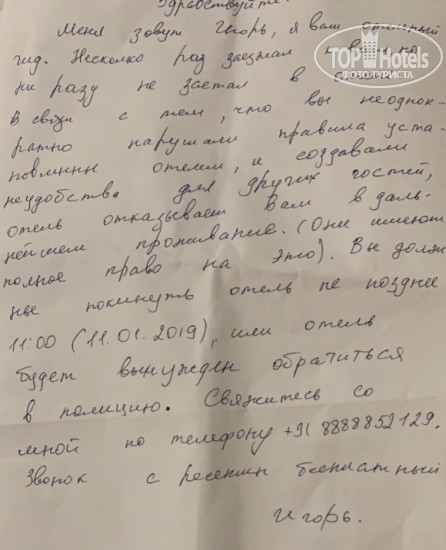 Здравствуйте!
Меня зовут Игорь, я ваш отельный
гид. Несколько раз заезжал к вам, но
ни разу не застал в
В связи с тем, что вы неоднок-
ратно нарушали правила уста-
новленные отелем, и создавали
неудобства для других гостей,
отель отказывает Вам в даль-
нейшем проживание. (Они имеют
полное право на это). Вы долж
ны покинуть отель не позднее
11:00 (11.01.2019), или отель
будет вынужден обратиться
в полицию. Свяжитесь со
мной по телефону +91 8888852129.
Звонок с ресепшн бесплатный
Игорь.
TOPHotels
ФОТО ТУРИСТА